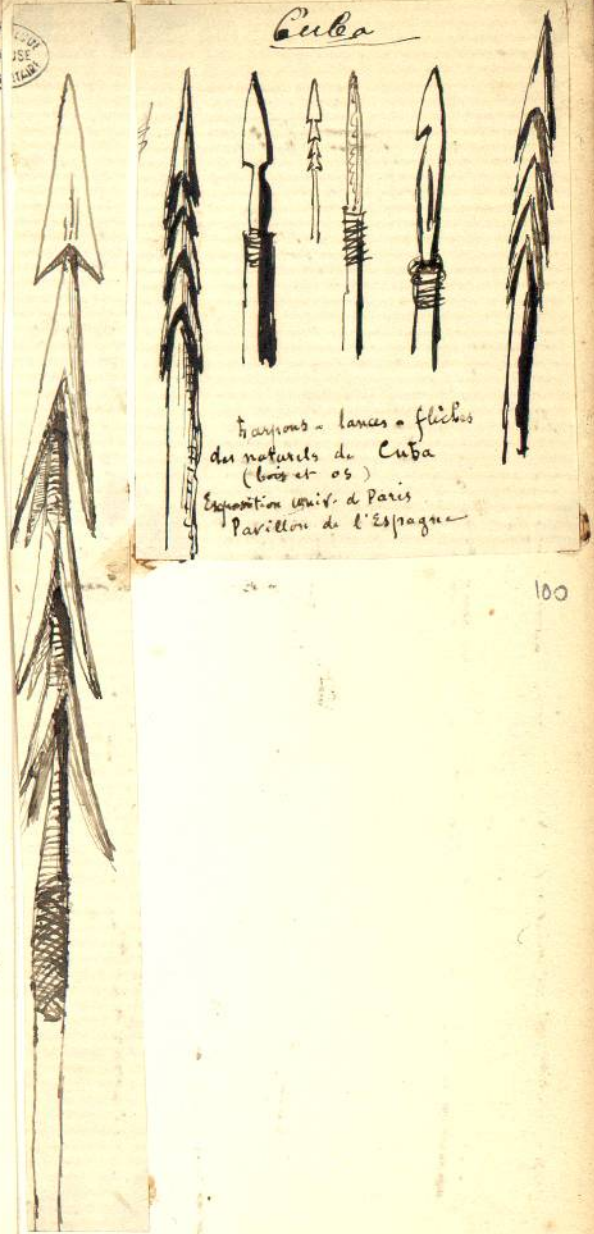 Cuba
harpons - lances - flèches
des naturels de Cuba
(bois et os)
Exposition univ. d Paris
Pavillon de l'Espagne
100